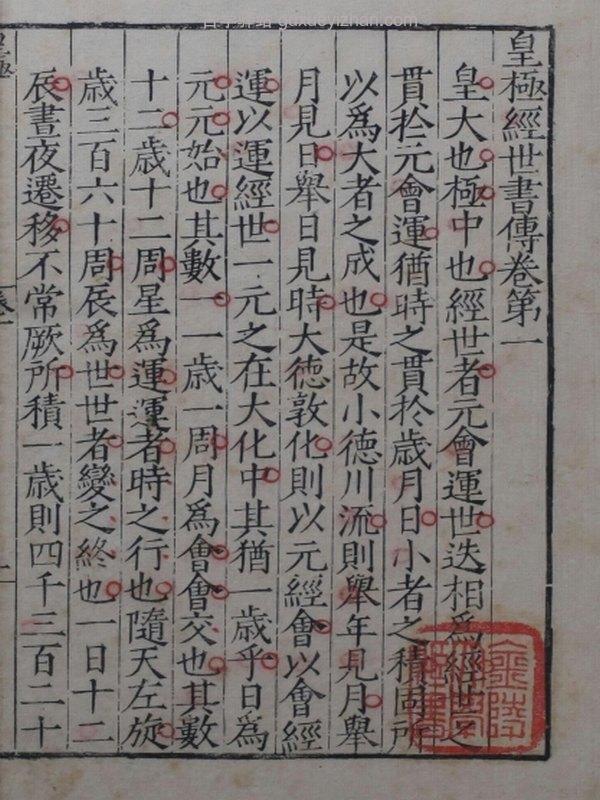 guxueyizhan.com
皇極經世書傳卷第一
皇大也極中也經世者元會運世迭相爲經世之
貫於元會運猶時之貫於歲月日小者之積固所
以爲大者之成也是故小德川流則舉年見月舉
月見日舉日見時大德敦化則以元經會以會經
運以運經世一元之在大化中其猶一歲乎日爲
元元始也其數一一歲一周月爲會會交也其數
十二歲十二周星爲運運者時之行也隨天左旋
歲三百六十周辰爲世世者變之終也一日十二
辰晝夜遷移不常厥所積一歲則四千三百二十